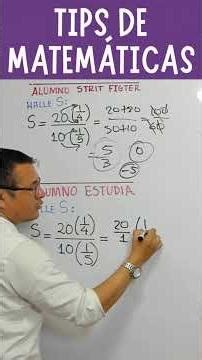 TIPS DE
MATEMÁTICAS
ALUMNO STRIT FIGTER
HALLE S:
S = 20(1/4) / 10(1/5) = 20+20 / 50+10 =
5/3 0
-5
UMNO ESTUDIA
HALLE S:
S = 20(1/4) / 10(1/5) = 20/1 (1